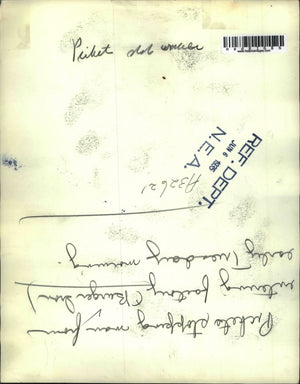 Picket slob wrecker
REF. DEPT.
JUN 6 1935
N.E.A.
A32621
Pickets stopping man from
entering factory (Kruger Bros)
early Tuesday morning.